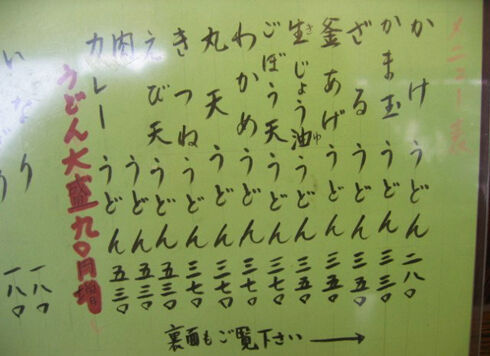 メニュー表
かけうどん 二八〇
かま玉うどん 三三〇
ざるうどん 三五〇
釜あげうどん 三五〇
生じょう油うどん 三三〇
ごぼう天うどん 三七〇
わかめうどん 三七〇
丸天うどん 三七〇
きつねうどん 三七〇
えび天うどん 五三〇
肉うどん 五三〇
カレーうどん 五三〇
うどん大盛九〇円増
いなり 一八〇
一八〇
裏面もご覧下さい→